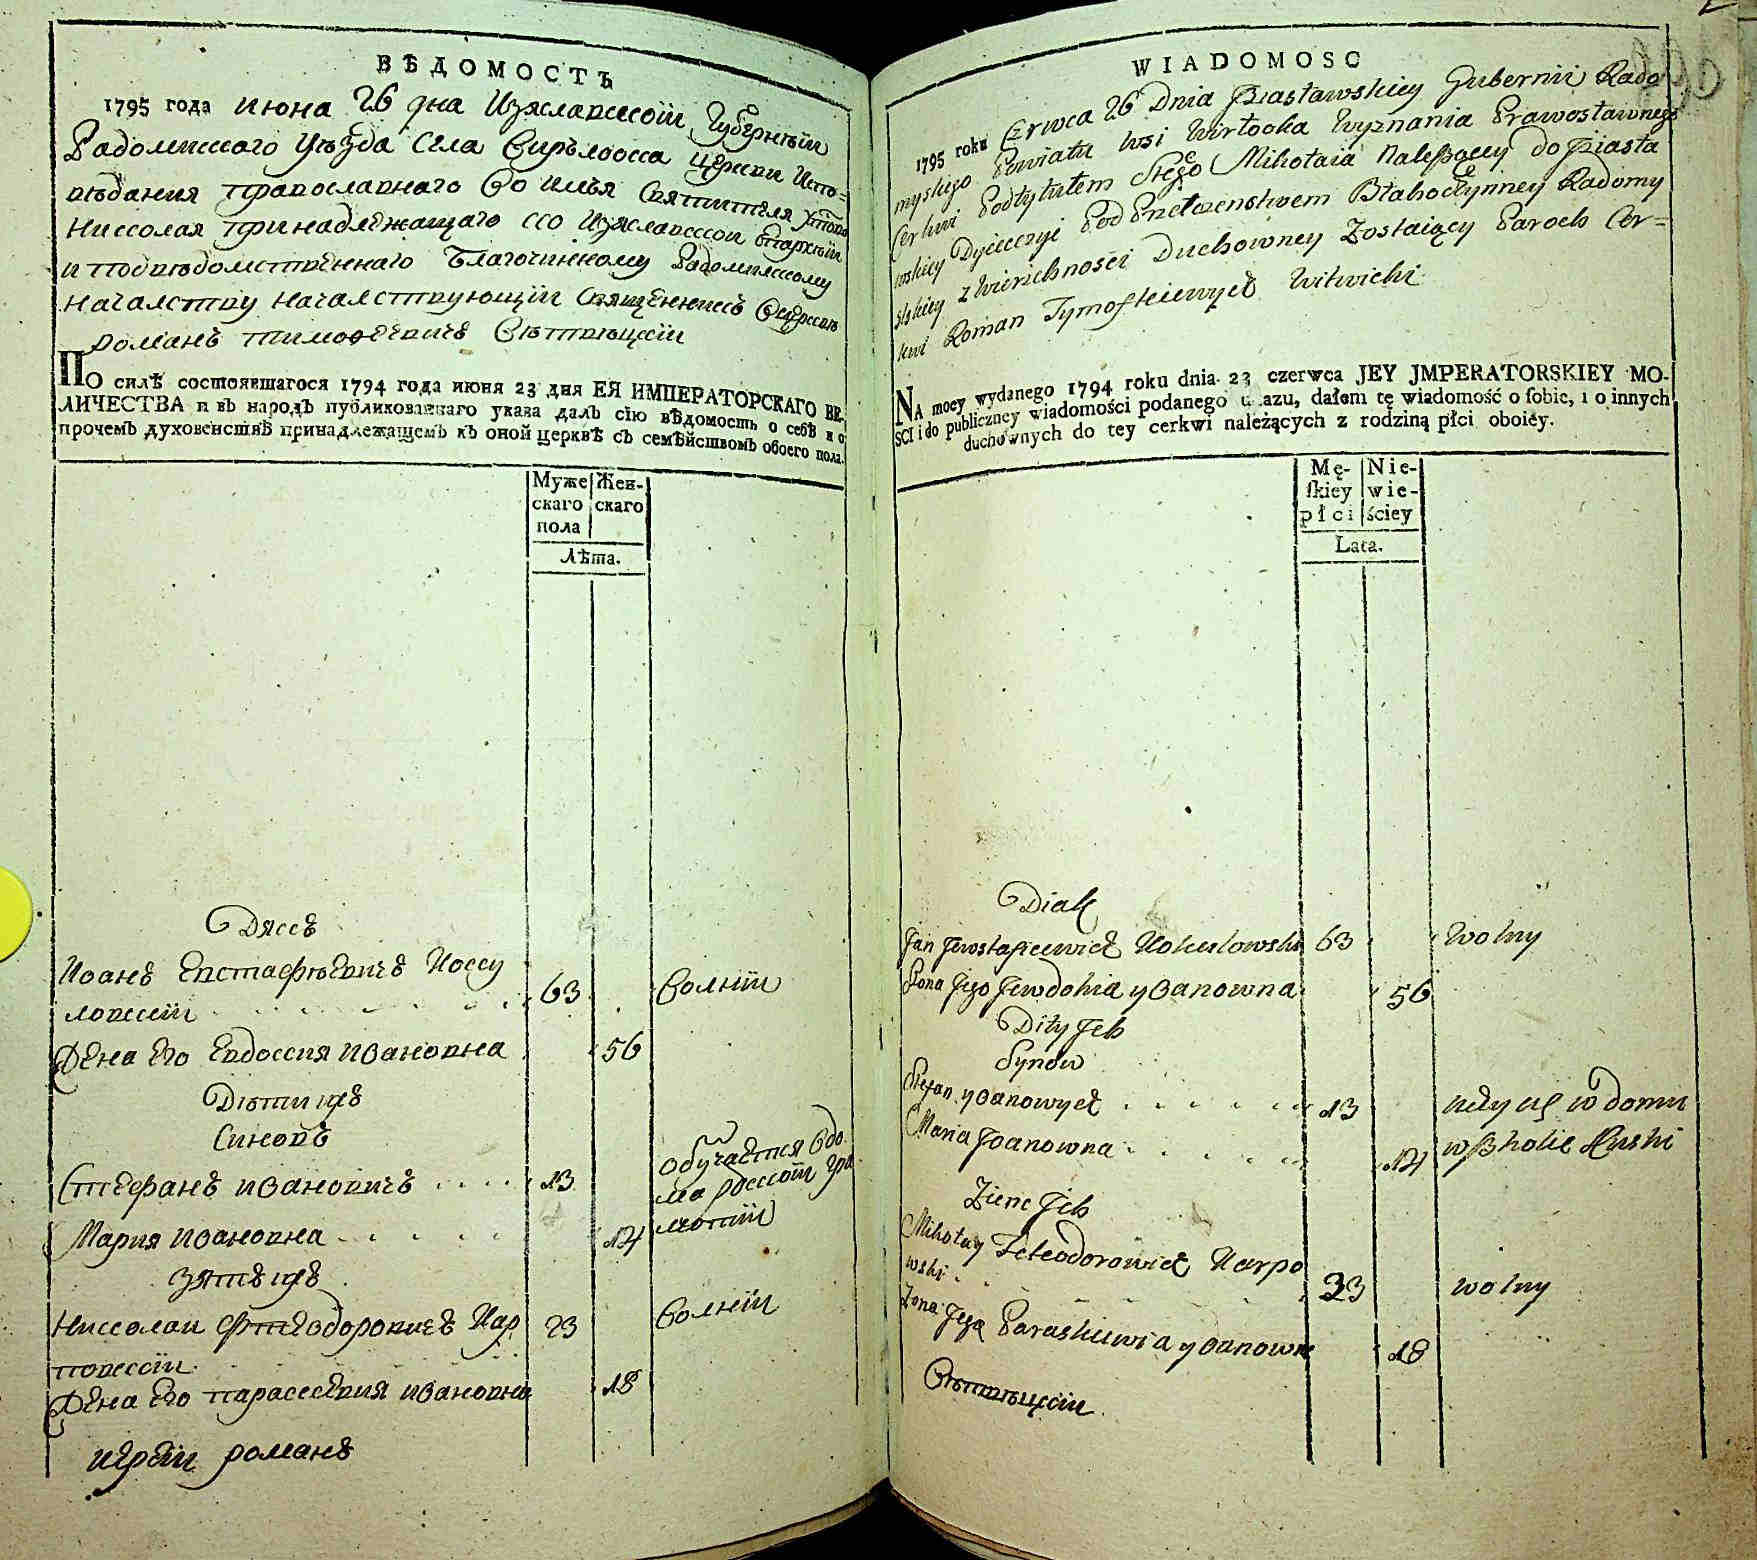 ВѢДОМОСТЬ
1795 года июна 26 дна Изяславской Губернѣи
Радомисского Уѣзда Села Вирълооса церкви Испо-
вѣдания православнаго во имья Святителя
Николая принадлежащаго ко Изяславской Епархѣи
и подвѣдомственнаго Благочинному Радомисскому
началству началствующій Священникъ
Романъ Тимофеевичъ Вѣтвѣцкій
ПО силѣ состоявшагося 1794 года июня 23 дня ЕЯ ИМПЕРАТОРСКАГО ВЕ-
ЛИЧЕСТВА и въ народъ публикованнаго указа далъ сію вѣдомость о себѣ и о
прочемъ духовенствѣ принадлежащемъ къ оной церквѣ съ семѣйствомъ обоего пола.
Муже
скаго
пола
Жен-
скаго
Лѣта.
Дякъ
Иоанъ Евстафѣевичъ Коку
ловскій 63 волнїй
Жена Его Евдокия Ивановна 56
Дѣти ихъ
Синовъ
Стефанъ Ивановичъ 13 обучается в до
ма роской гра
мотїй
Мария Ивановна 14
Зять ихъ
Николаи Фтеодоровичъ Кар
повскій 23 волнїй
Жена Его Параскевия Ивановна 18
Иерей Романъ
WIADOMOSC
1795 roku Czrwca 26 Dnia Iziasławskiey Gubernii Rado
myskiego Powiatu wsi Wirłooka Wyznania Prawosławnego
Cerkwi Podtytułem Stego Mikołaia Należącey do Iziasła
wskiey Dyiecezyi Pod Przełozenstwem Błahoczynney Radomy
slskiey z Wierzchności Duchowney Zostaiący Paroch Cer-
kwi Roman Tymofteiewycz Witwicki
NA mocy wydanego 1794 roku dnia 23 czerwca JEY JMPERATORSKIEY MO-
SCI i do publiczney wiadomości podanego ukazu, dałem tę wiadomość o sobie, i o innych
duchownych do tey cerkwi należących z rodziną płci oboiéy.
Mę-
skiey
płci
Nie-
wie-
ściey
Lata.
Diak
Jan Jewstafiiewicz Kokulowski 63 wolny
Żona Jego Jewdokia Ywanowna 56
Dity Jch
Synow
Stefan Ywanowycz 13 uczy się w domu
Maria Joanowna 14 w szkolie Ruski
Zienc Jch
Mikołay Fteodorowicz Karpo
wski 23 wolny
Żona Jego Paraskiewia Ywanowna 18
Вѣтвѣцкїй